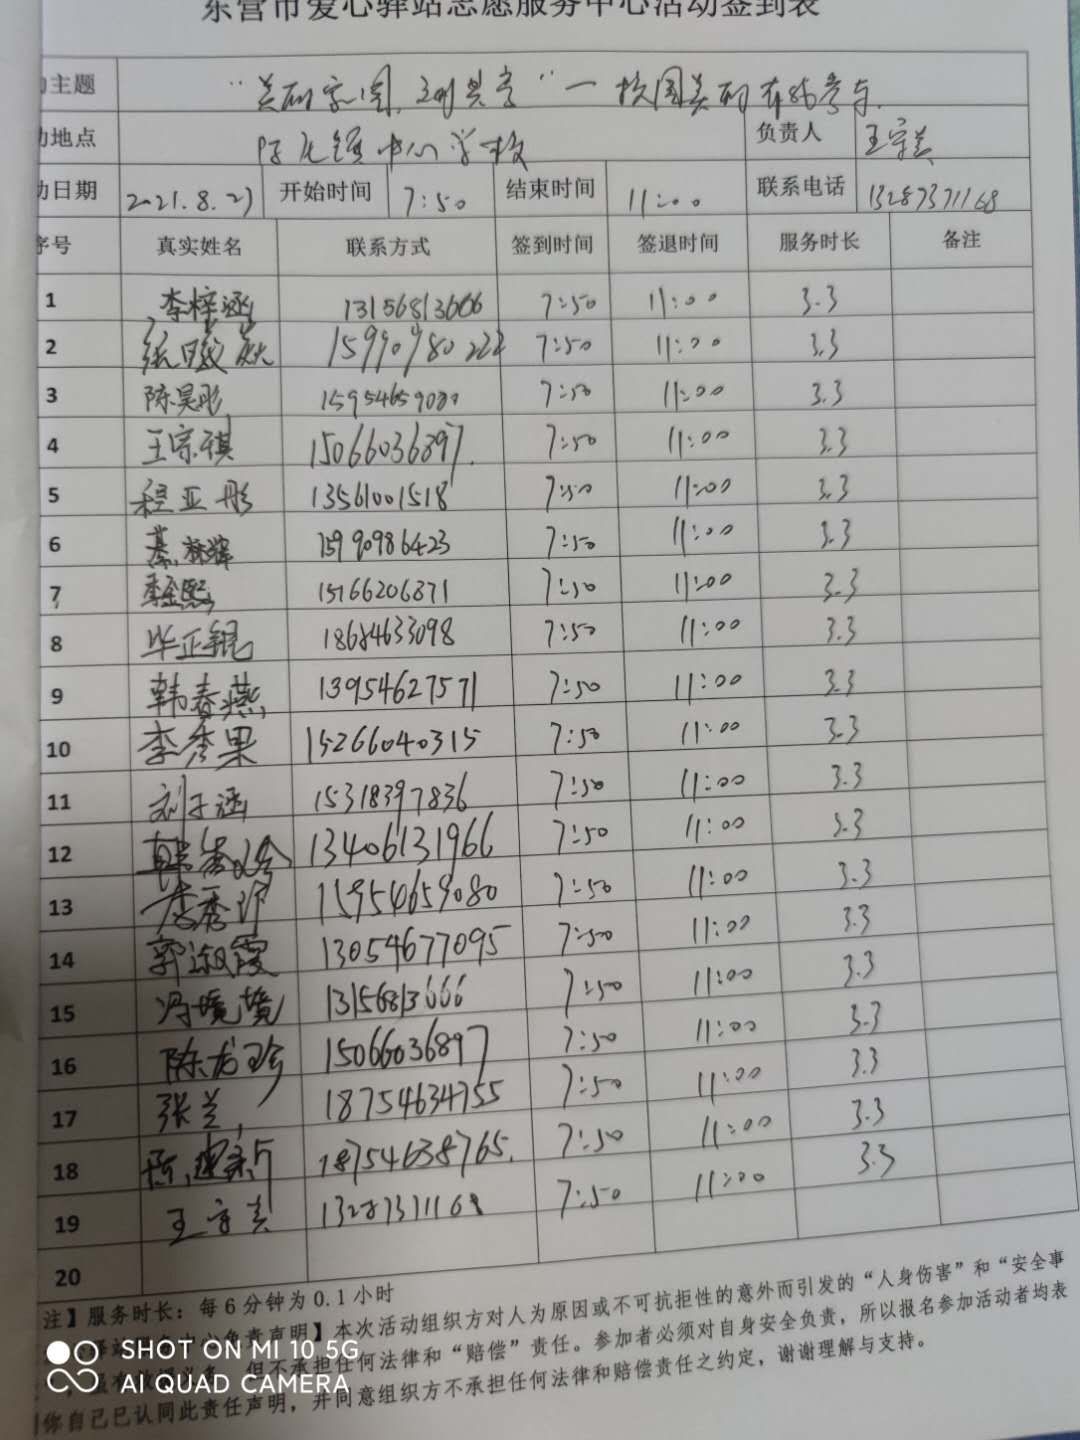 东营市爱心驿站志愿服务中心活动签到表
主题 "美丽家园, 共享"一校园美丽 参与.
地点 中心学校 负责人 王守美
日期 2021.8.27 开始时间 7:50 结束时间 11:00 联系电话 13287371168
序号 真实姓名 联系方式 签到时间 签退时间 服务时长 备注
1 李梓涵 13156813666 7:50 11:00 3.3
2 15990980222 7:50 11:00 3.3
3 陈昊彤 15954659080 7:50 11:00 3.3
4 王宗祺 15066036897. 7:50 11:00 3.3
5 程亚彤 13561001518 7:50 11:00 3.3
6 綦 辉 15990986423 7:50 11:00 3.3
7 李金熙 15166206871 7:50 11:00 3.3
8 毕正锟 18684633098 7:50 11:00 3.3
9 韩春燕 13954627571 7:50 11:00 3.3
10 李秀果 15266040315 7:50 11:00 3.3
11 刘子涵 15318397836 7:50 11:00 3.3
12 韩 13406131966 7:50 11:00 3.3
13 李秀 15954659080 7:50 11:00 3.3
14 郭淑霞 13054677095 7:50 11:00 3.3
15 冯境境 13156813666 7:50 11:00 3.3
16 陈龙珍 15066036897 7:50 11:00 3.3
17 张兰 18754634755 7:50 11:00 3.3
18 陈建新 18754638765. 7:50 11:00 3.3
19 王守美 13287371168 7:50 11:00 3.3
20
注】服务时长:每6分钟为0.1小时
负责声明】本次活动组织方对人为原因或不可抗拒性的意外而引发的“人身伤害”和“安全事
但不承担任何法律和“赔偿”责任。参加者必须对自身安全负责,所以报名参加活动者均表
你自己已认同此责任声明,并同意组织方不承担任何法律和赔偿责任之约定,谢谢理解与支持。
SHOT ON MI 10 5G
AI QUAD CAMERA